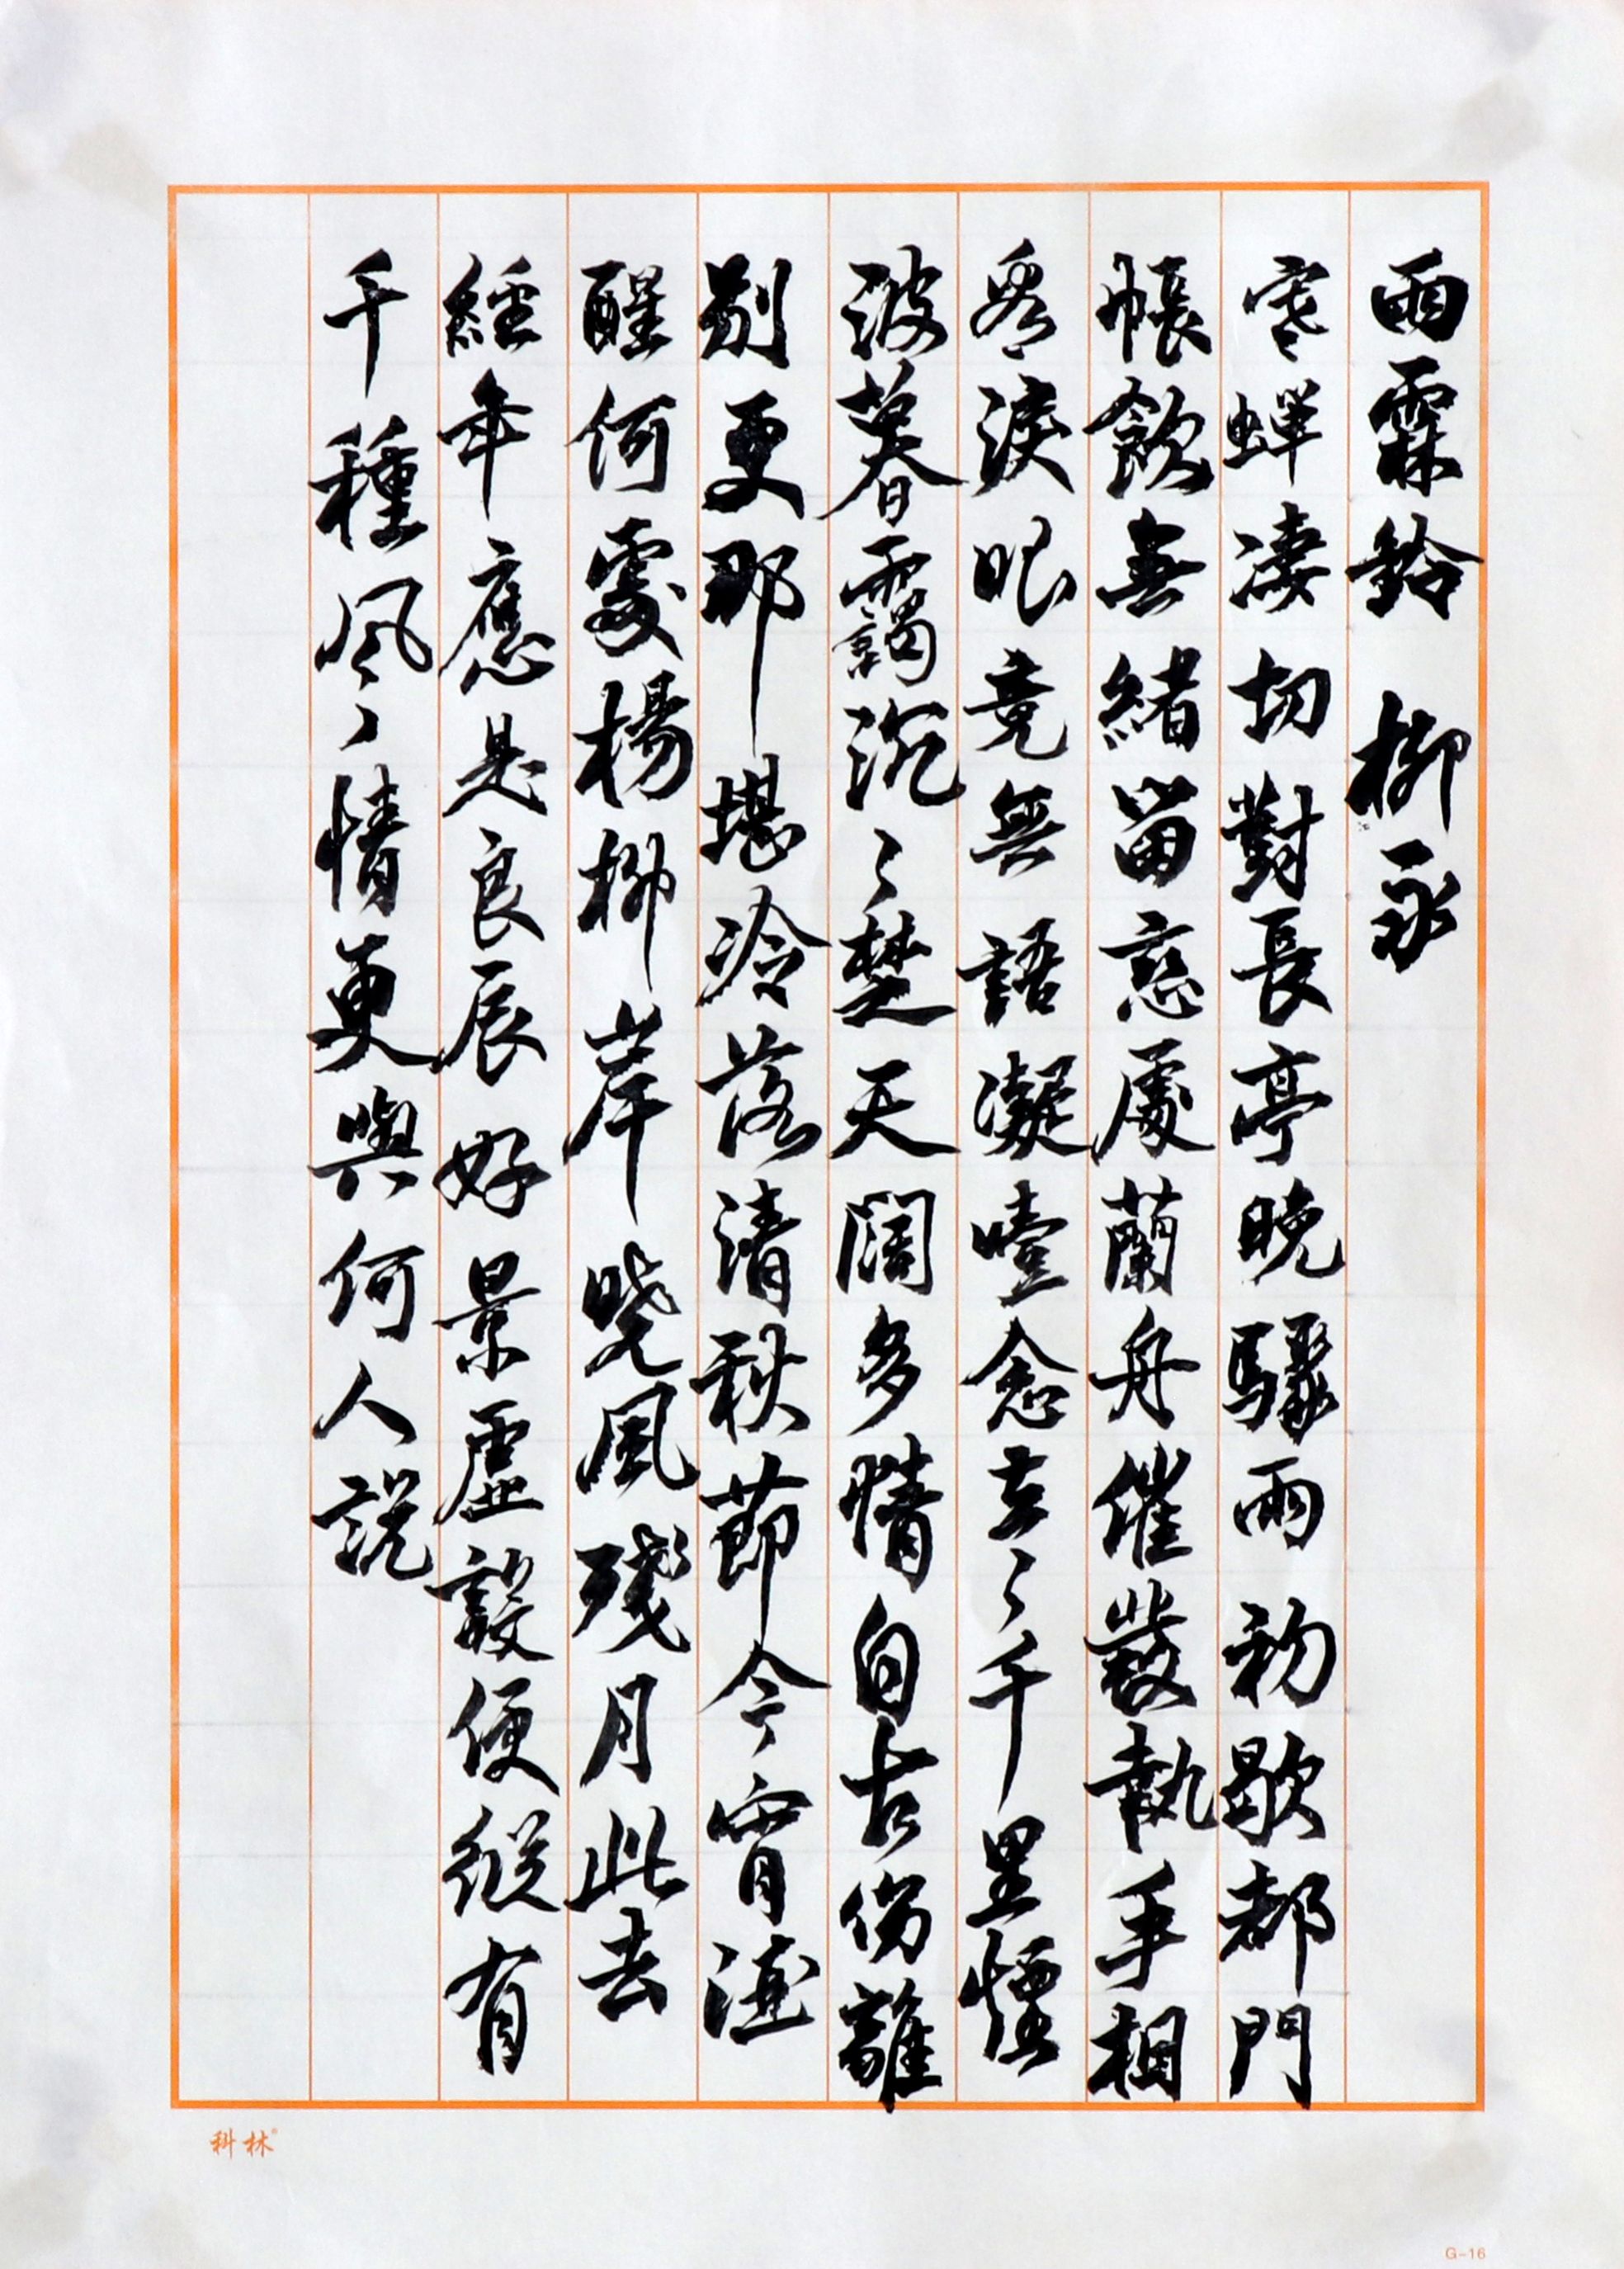 雨霖鈴 柳永
寒蟬淒切對長亭晚驟雨初歇都門
帳飲無緒留戀處蘭舟催發執手相
看淚眼竟無語凝噎念去々千里煙
波暮靄沉々楚天闊多情自古傷離
別更那堪冷落清秋節今宵酒
醒何處楊柳岸曉風殘月此去
經年應是良辰好景虛設便縱有
千種風々情更與何人說
科林®
G-16